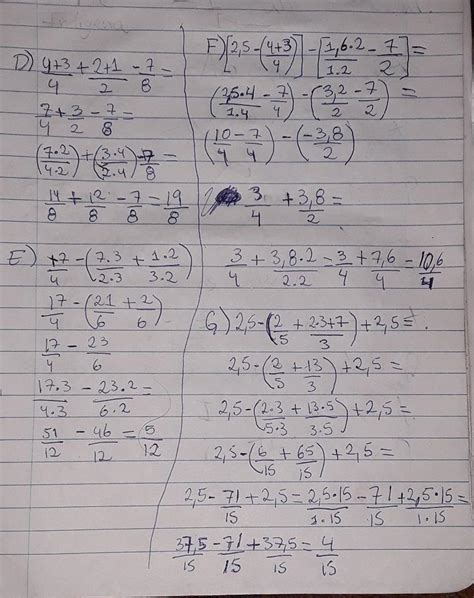 D) 4+3/4 + 2+1/2 - 7/8 =
7/4 + 3/2 - 7/8 =
(7·2/4·2) + (3·4/2·4) - 7/8 =
14/8 + 12/8 - 7/8 = 19/8
E) 17/4 - (7·3/2·3 + 1·2/3·2)
17/4 - (21/6 + 2/6)
17/4 - 23/6
17·3/4·3 - 23·2/6·2 =
51/12 - 46/12 = 5/12
F) [2,5 - (4+3/4)] - [1,6·2/1·2 - 7/2] =
(2,5·4/1·4 - 7/4) - (3,2/2 - 7/2) =
(10/4 - 7/4) - (-3,8/2)
3/4 + 3,8/2 =
3/4 + 3,8·2/2·2 = 3/4 + 7,6/4 = 10,6/4
G) 2,5 - (2/5 + 2·3+7/3) + 2,5 =
2,5 - (2/5 + 13/3) + 2,5 =
2,5 - (2·3/5·3 + 13·5/3·5) + 2,5 =
2,5 - (6/15 + 65/15) + 2,5 =
2,5 - 71/15 + 2,5 = 2,5·15/1·15 - 71/15 + 2,5·15/1·15 =
37,5/15 - 71/15 + 37,5/15 = 4/15